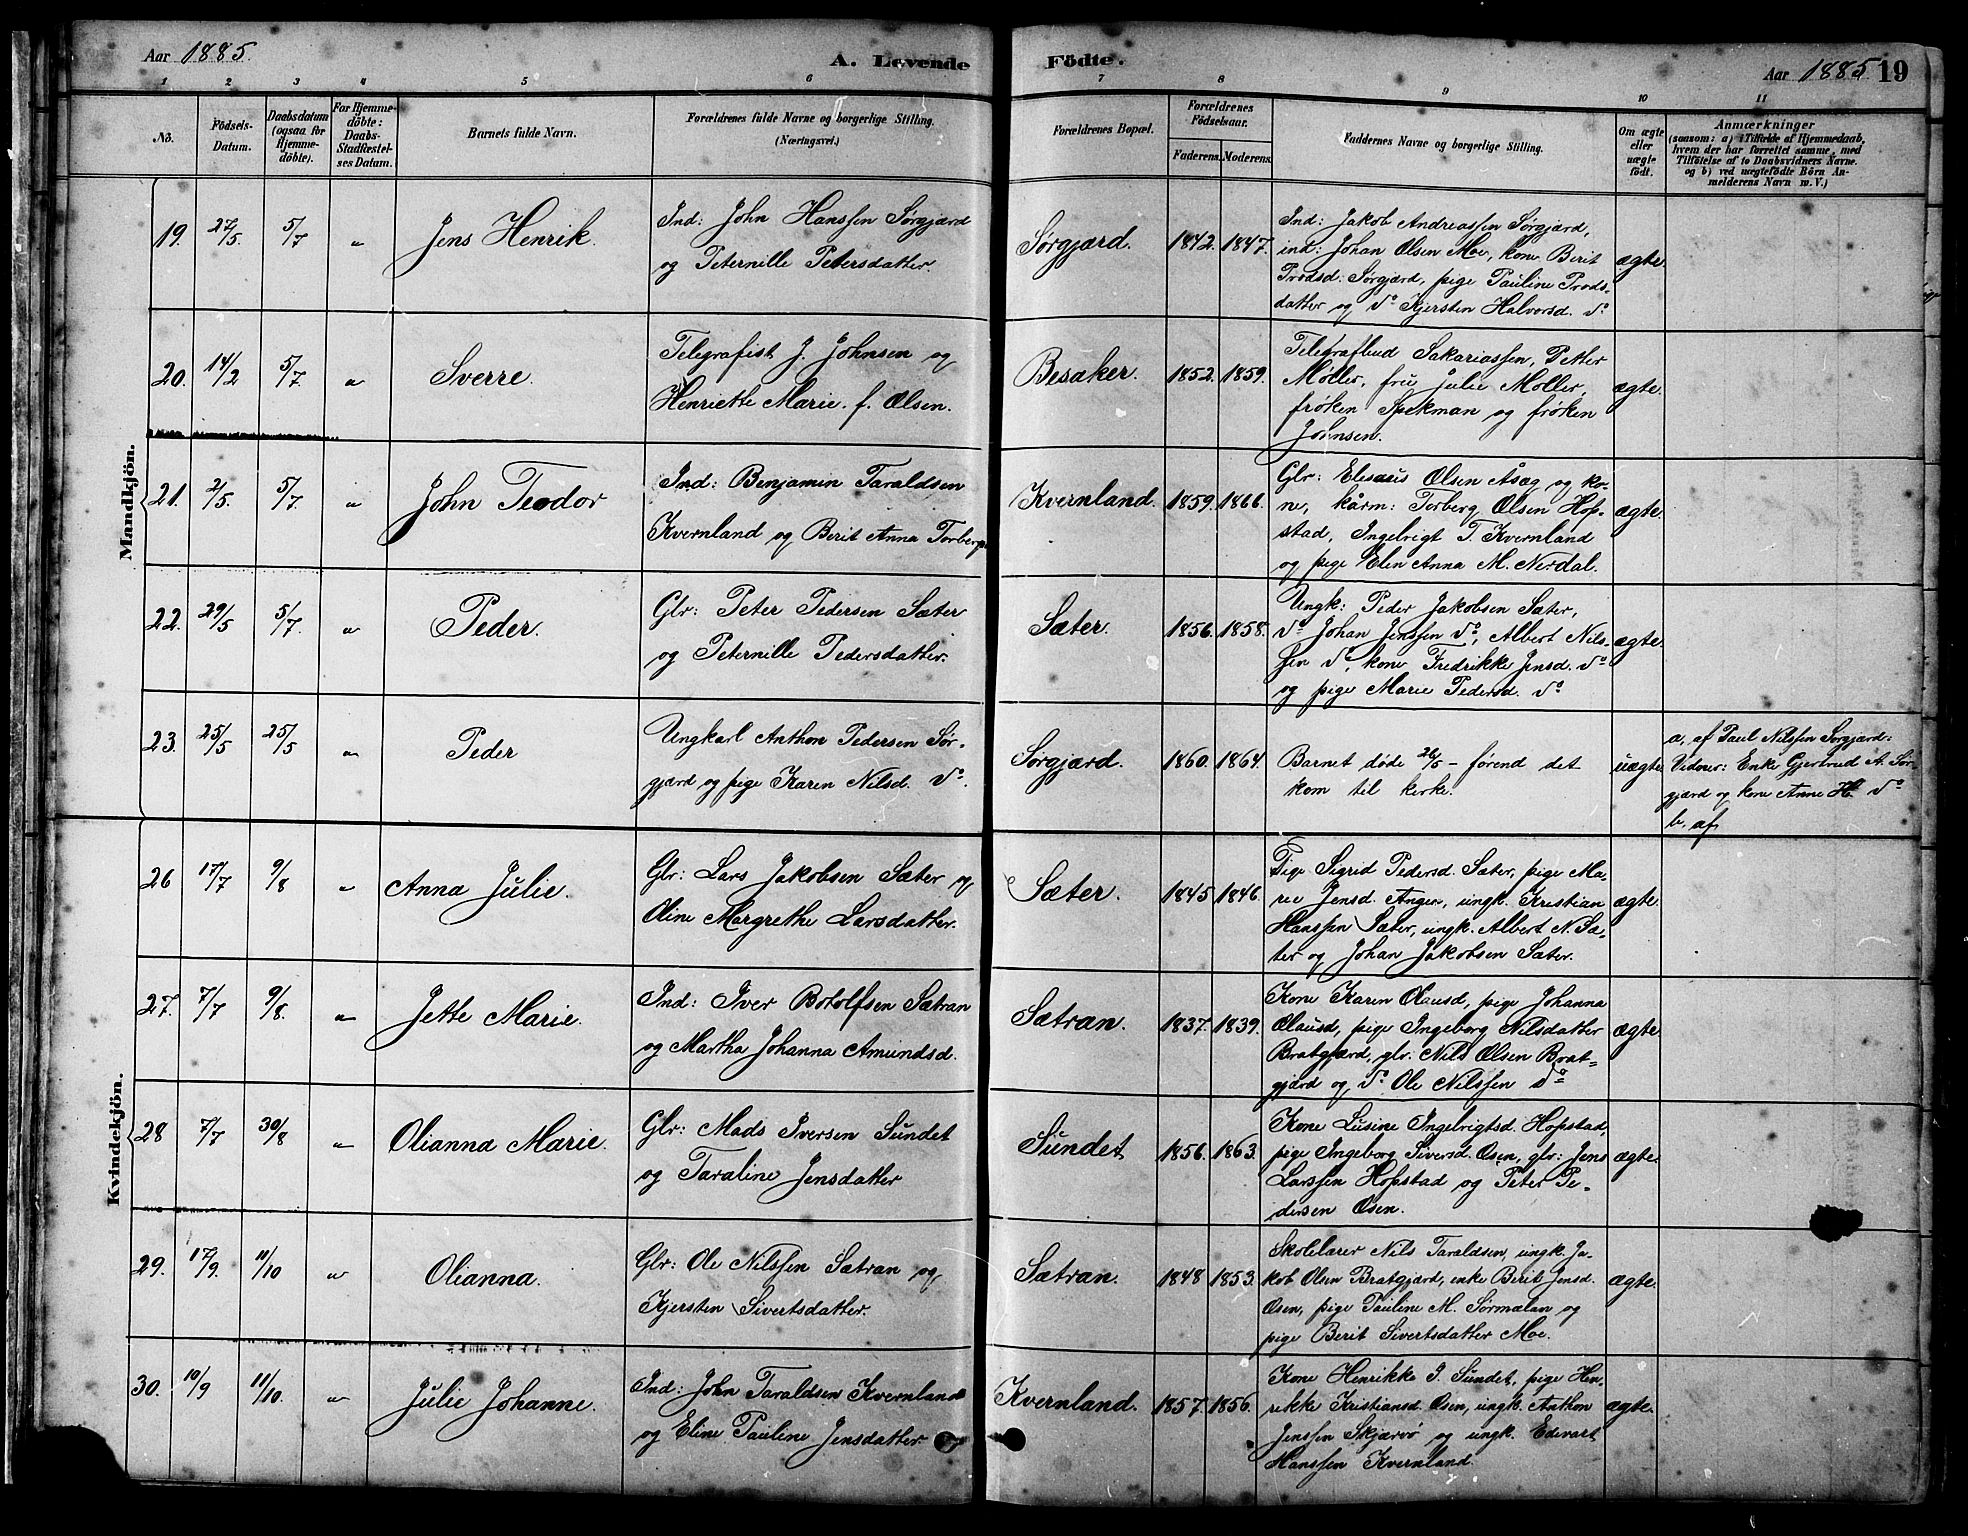 Aar 1885.
A. Levende Födte.
Aar 1885 19
1 2 3 4 5 6 7 8 9 10 11
No.
Födsels-
Datum.
Daabsdatum
(ogsaa for
Hjemme-
döbte).
For Hjemme-
döbte:
Daabs-
Stadfæstel-
ses Datum.
Barnets fulde Navn.
Forældrenes fulde Navne og borgerlige Stilling.
(Næringsvei.)
Forældrenes Bopæl.
Forældrenes
Födselsaar.
Faderens. Moderens.
Faddernes Navne og borgerlige Stilling.
Om ægte
eller
uægte
födt.
Anmærkninger
(saasom: a) i Tilfælde af Hjemmedaab,
hvem der har forrettet samme, med
Tilföielse af to Daabsvidners Navne.
og b) ved uægtefödte Börn An-
melderens Navn m. V.)
Mandkjön.
19. 27/5 5/7 " Jens Henrik.
Ind: John Hanssen Sørgjærd
og Peternille Petersdatter.
Sørgjærd. 1842. 1847.
Ind: Jakob Andreassen Sørgjærd,
ind: Johan Olsen Moe, kone Berit
Trodsd. Sørgjærd, pige Pauline Trods-
datter og do Kjersten Halvorsd. do
ægte.
20. 14/2 5/7 " Sverre.
Telegrafist J. Johnsen og
Henriette Marie. f. Olsen.
Besaker. 1852. 1859.
Telegrafbud Sakariassen, Petter
Møller, fru Julie Møller,
frøken Spekman og frøken
Johnsen.
ægte.
21. 2/5 5/7 " John Teodor
Ind: Benjamin Taraldsen
Kvernland og Berit Anna Torbergs
Kvernland. 1859. 1866.
Glr: Eleseus Olsen Åsæg og ko-
ne, kårm: Torberg Olsen Hop-
stad, Ingelrigt T. Kvernland
og pige Elen Anna M. Nerdal.
ægte.
22. 29/5 5/7 " Peder.
Glr: Peter Pedersen Sæter
og Peternille Pedersdatter.
Sæter. 1856. 1858.
Ungk: Peder Jakobsen Sæter,
do Johan Jenssen do, Albert Nils-
sen do, kone Fredrikke Jensd. do
og pige Marie Pedersd. do
ægte.
23. 25/5 25/5 " Peder
Ungkarl Anthon Pedersen Sør-
gjærd og pige Karen Nilsd. do.
Sørgjærd. 1860. 1864.
Barnet døde 26/5 - førend det
kom til kerke.
uægte
a, af Paul Nilssen Sørgjærd:
Vidner: Enke Gjertrud A. Sør-
gjærd og kone Anne H. do
b, af
Kvindekjön.
26 17/7 9/8 " Anna Julie.
Glr: Lars Jakobsen Sæter og
Oline Margrethe Larsdatter.
Sæter. 1845 1846.
Pige Sigrid Pedersd. Sæter, pige Ma-
rie Jensd. Angen, ungk. Kristian
Hanssen Sæter, ungk. Albert N. Sæ-
ter og Johan Jakobsen Sæter.
ægte.
27. 7/7 9/8. " Jette Marie.
Ind: Iver Botolfsen Sætran
og Martha Johanna Amundsd.
Sætran. 1837. 1839.
Kone Karen Olausd, pige Johanna
Olausd, pige Ingeborg Nilsdatter
Bratgjærd, glr. Nils Olsen Brat-
gjærd og do Ole Nilssen do
ægte.
28 7/7 30/8 " Olianna Marie.
Glr: Mads Iversen Sundet
og Taraline Jensdatter
Sundet 1856. 1863.
Kone Lusine Ingelrigtsd. Hopstad,
pige Ingeborg Siversd. Osen, glr: Jens
Larssen Hopstad og Peter Pe-
dersen Osen.
ægte.
29. 17/9. 11/10 " Olianna.
Glr: Ole Nilssen Sætran og
Kjersten Sivertsdatter.
Sætran. 1848 1853.
Skolelærer Nils Taraldsen, ungk. Ja-
kob Olsen Bratgjærd, enke Berit Jensd.
Osen, pige Pauline M. Sørmælan og
pige Berit Sivertsdatter Moe.
ægte.
30. 10/9 11/10. " Julie Johanne.
Ind: John Taraldsen Kvernland
og Eline Pauline Jensdatter.
Kvernland. 1857. 1856.
Kone Henrikke J. Sundet, pige Hen-
rikke Kristiansd. Osen, ungk. Anthon
Jenssen Skjærvø og ungk. Edevart
Hanssen Kvernland.
ægte.